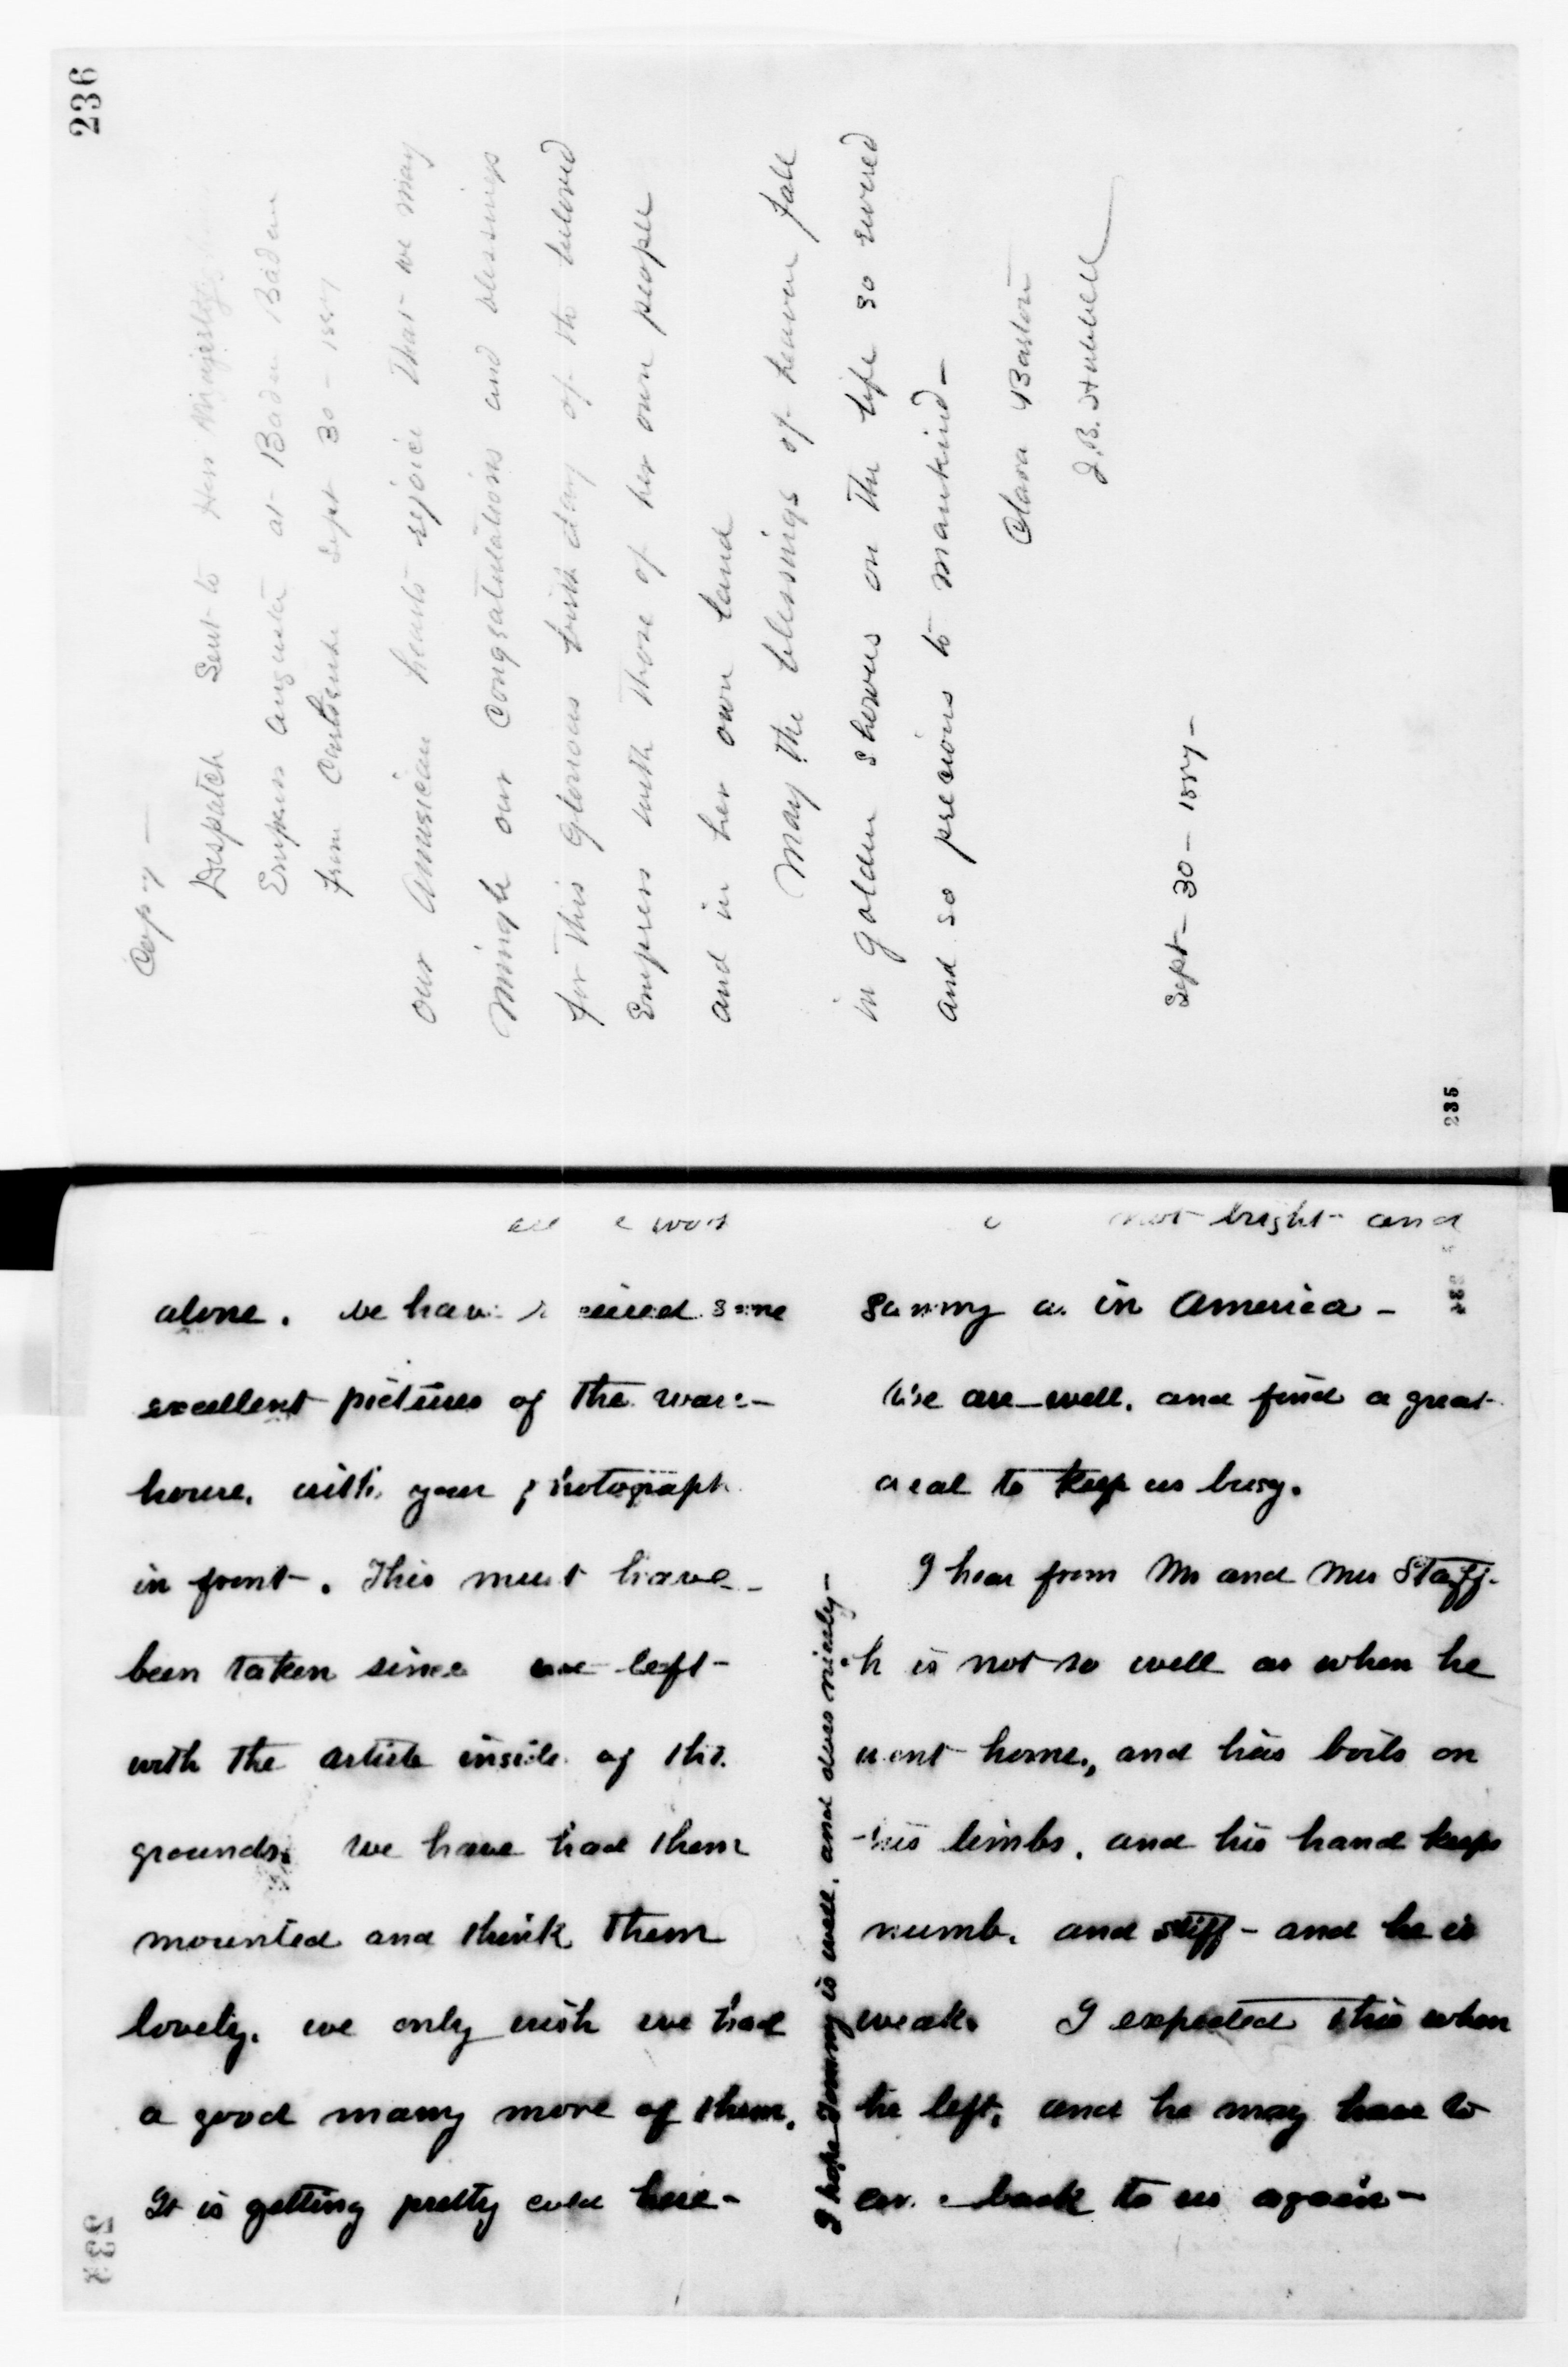 236
Copy —
Despatch Sent to Her Majesty
Empress Augusta at Baden Baden
from Carlsruhe Sept 30 - 1887
Our American hearts rejoice that we may
mingle our Congratulations and blessings
for this glorious birth day of the beloved
Empress with those of her own people
and in her own land
May the blessings of heaven fall
in golden showers on the life so revered
and so precious to mankind —
Clara Barton
J. B. Hubbell
Sept - 30 - 1887 -
235
alone. We have received some
excellent pictures of the ware-
house, with your photograph
in front. This must have
been taken since we left -
with the article inside of the
grounds. We have had them
mounted and think them
lovely. we only wish we had
a good many more of them.
It is getting pretty cold here -
not bright and
sunny as in America -
We are well, and find a great
deal to keep us busy.
I hear from Mr and Mrs Staff.
h is not so well as when he
went home, and has boils on
his limbs, and his hand keeps
numb, and stiff - and he is
weak. I expected this when
he left, and he may have to
come back to us again -
I hope Tommy is well, and does nicely -